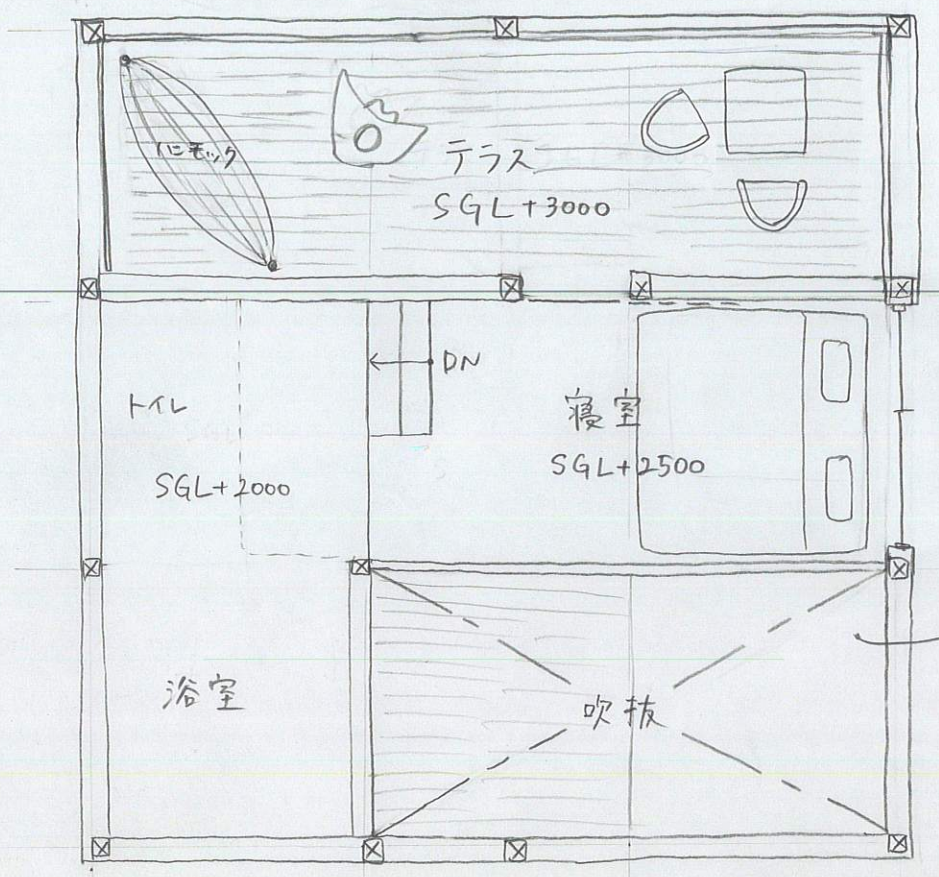 ハンモック
テラス
SGL+3000
DN
トイレ
寝室
SGL+2500
SGL+2000
浴室
吹抜